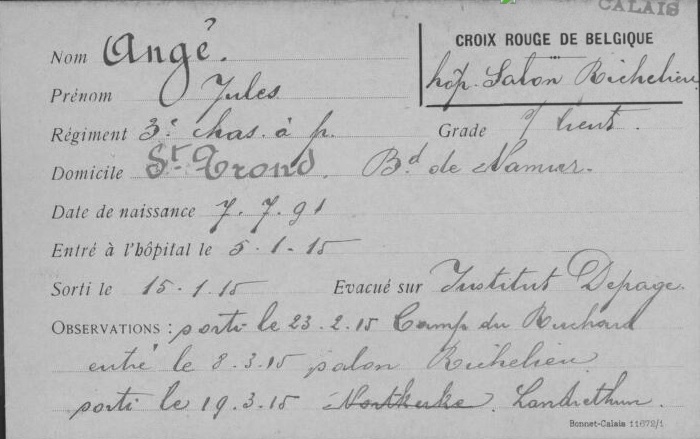 CALAIS
Nom Angé.
CROIX ROUGE DE BELGIQUE
hôp. Salon Richelieu
Prénom Jules
Régiment 3e chas. à p. Grade s/ lieut.
Domicile St. Trond. Bd de Namur.
Date de naissance 7. 7. 91
Entré à l'hôpital le 5. 1. 15
Sorti le 15. 1. 15 Evacué sur Institut Depage.
OBSERVATIONS : sorti le 23. 2. 15 Camp du Ruchard
entré le 8. 3. 15 salon Richelieu
sorti le 19. 3. 15 Nortkerke. Landrethun.
Bonnet-Calais 11672/1.